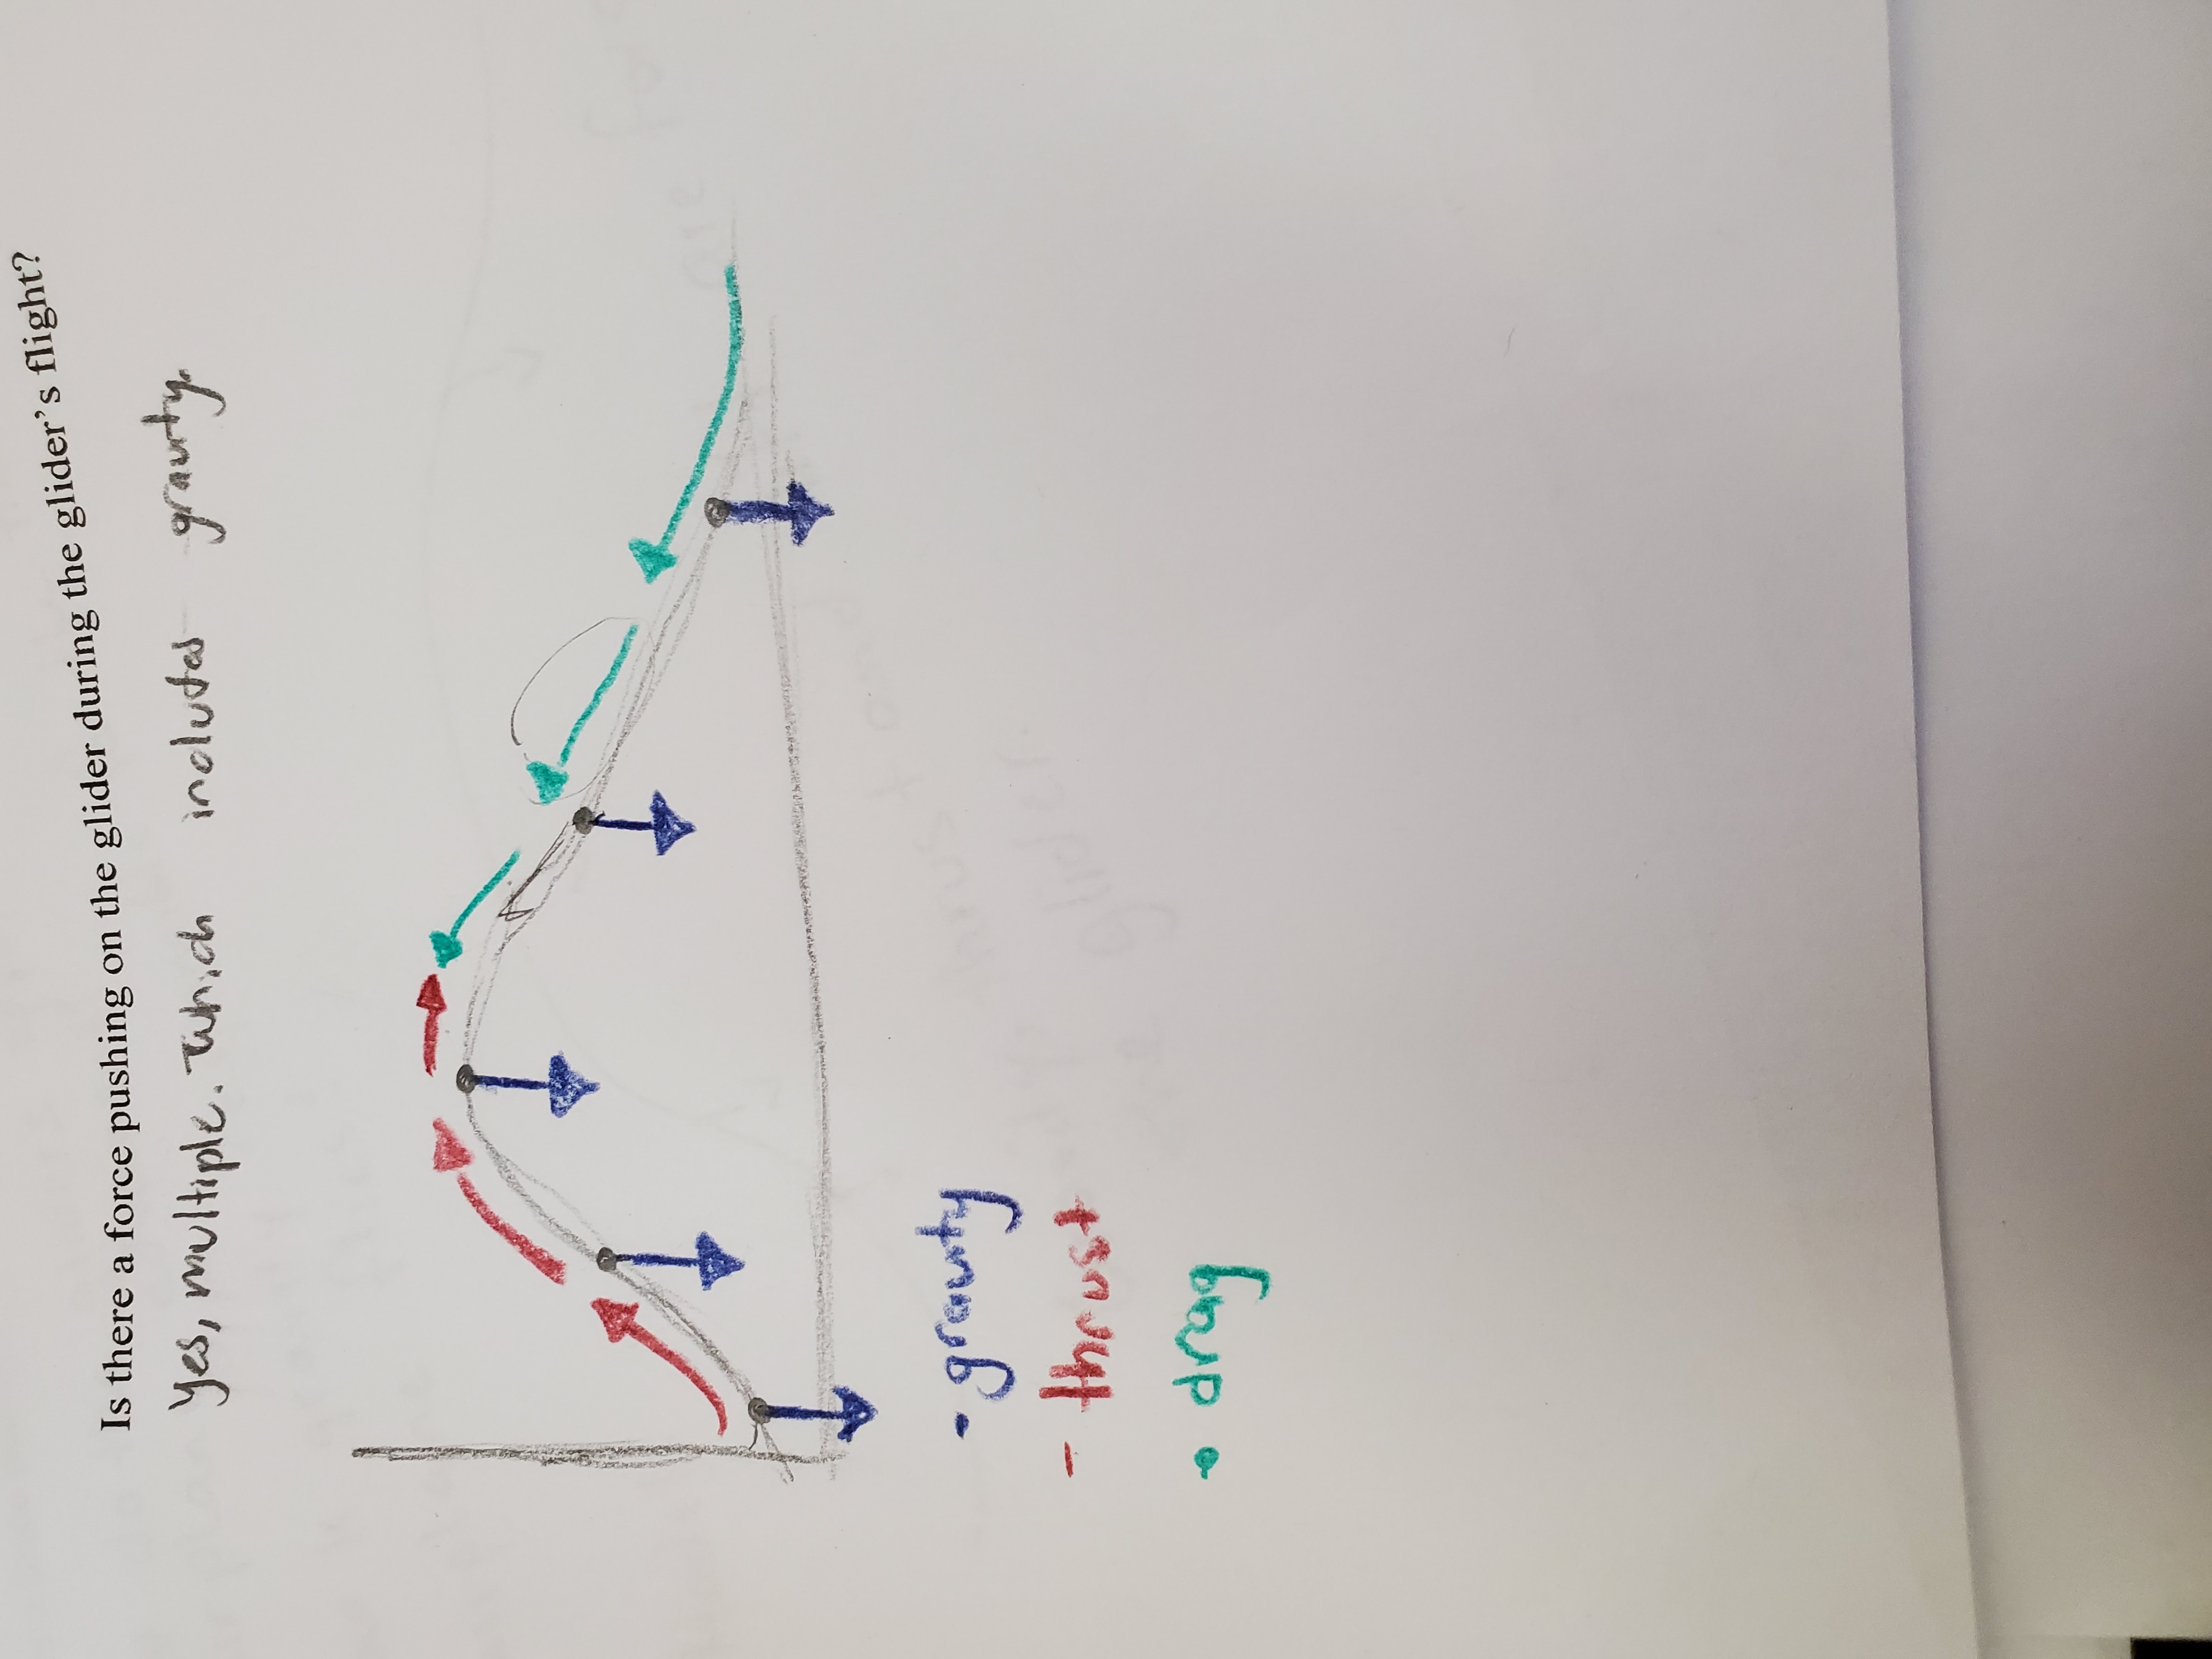 Is there a force pushing on the glider during the glider's flight?
Yes, multiple. Which includes gravity.
- gravity
- thrust
• drag